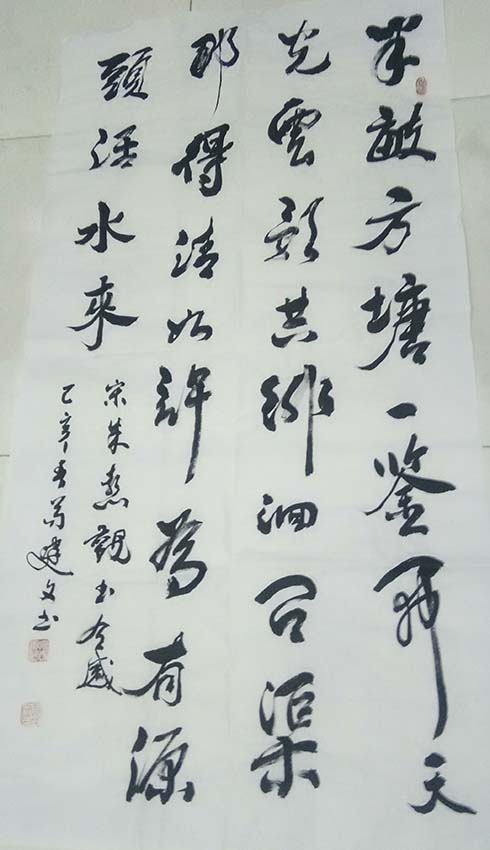 半畝方塘一鉴開天
光雲影共徘徊问渠
那得清如許為有源
頭活水來
宋朱熹觀书有感
己亥春建文书